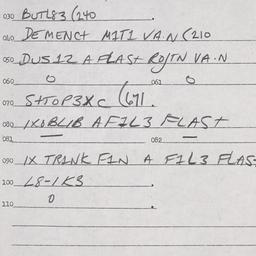 030 BUTL83 (240
040 DEMENCT M1T1 VA.N (210
050 DUS12 A FLAST RO/TN VA.N
060 0 061 0
070 STTOP3XC (671.
080 1XOBLIB AF1L3 FLAST
081 — 082 —
090 1X TR1NK F1N A F1L3 FLAST
100 L8-1K3
110 0